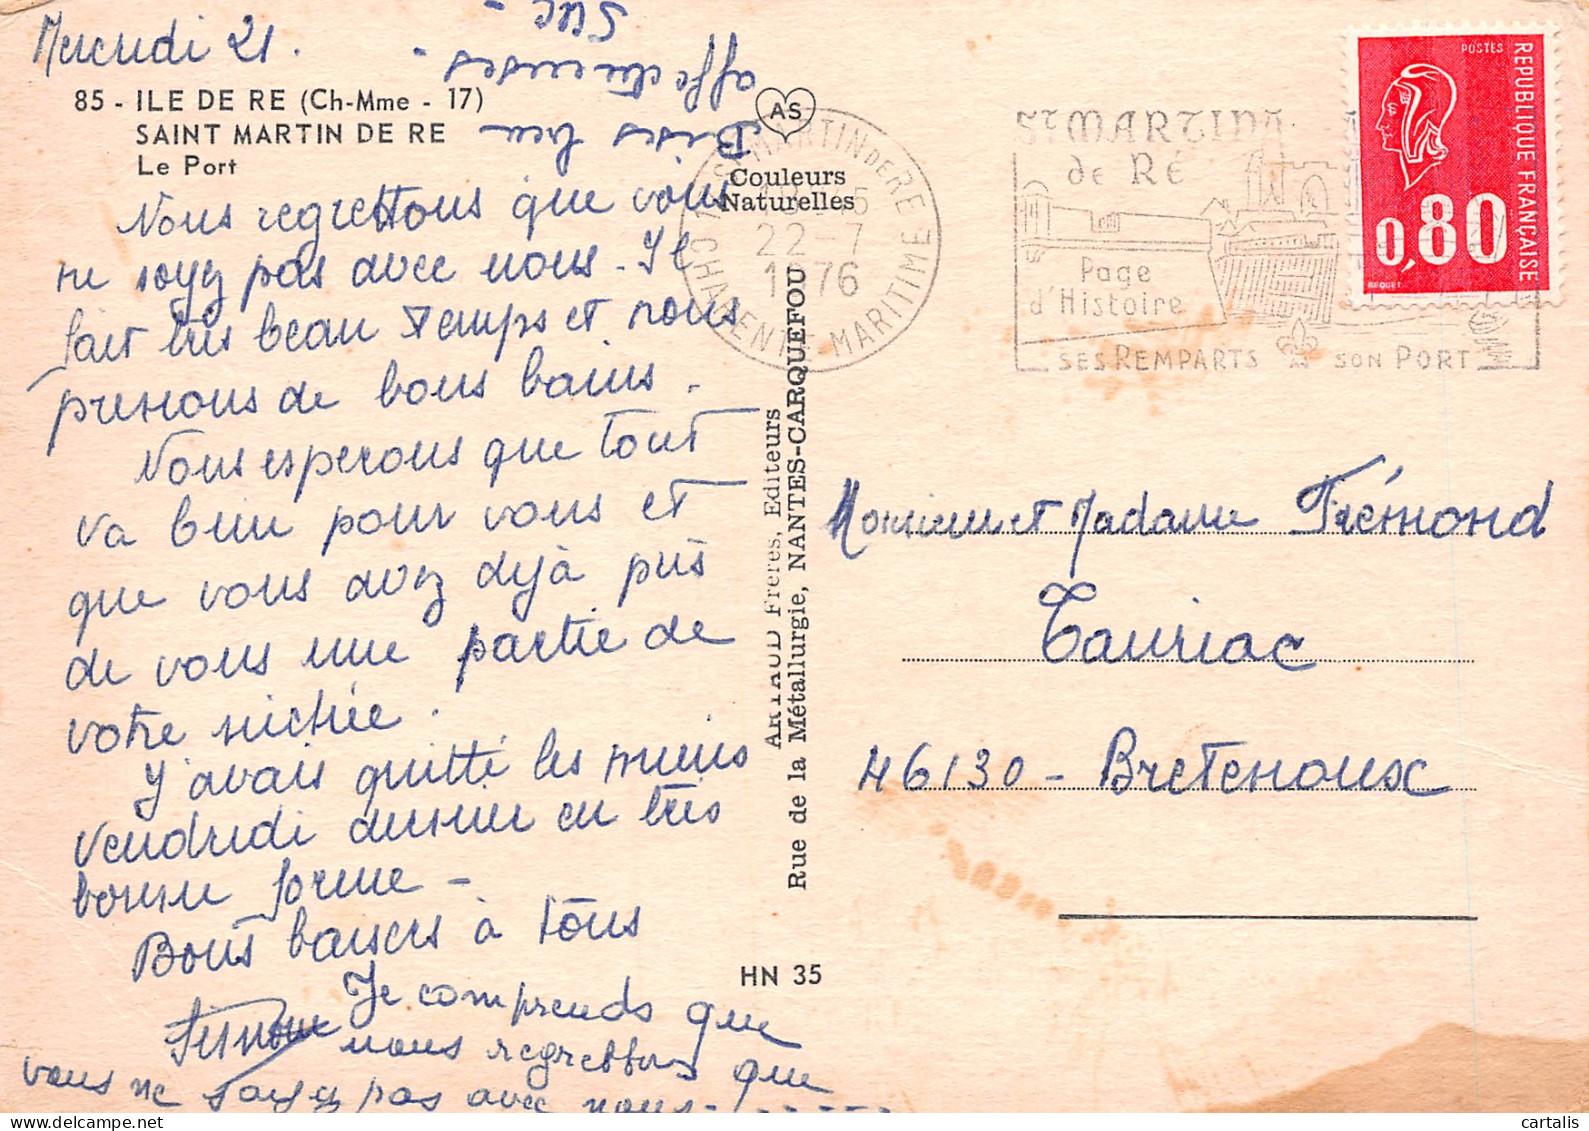 Mercredi 21.
85 - ILE DE RE (Ch-Mme - 17)
SAINT MARTIN DE RE
Le Port
Nous regrettons que vous
ne soyez pas avec nous. Il
fait très beau temps et nous
prenons de bons bains.
Nous esperons que tout
va bien pour vous et
que vous avez déjà près
de vous une partie de
votre nichée.
J'avais quitté les miens
vendredi dernier en très
bonne forme -
Bons baisers à tous
Je comprends que
nous regrettons que
vous ne soyez pas avec nous------
Bises bien
affectueuses -
AS
Couleurs
Naturelles
ARTAUD Frères, Editeurs
Rue de la Métallurgie, NANTES-CARQUEFOU
HN 35
17 ST MARTIN DE RE
22 - 7
1976
CHARENTE MARITIME
ST MARTIN
de RÉ
Page
d'Histoire
SES REMPARTS SON PORT
POSTES
REPUBLIQUE FRANÇAISE
0,80
BEQUET
Monsieur et Madame Frémond
Tauriac
46130 - Bretenoux
cartalis